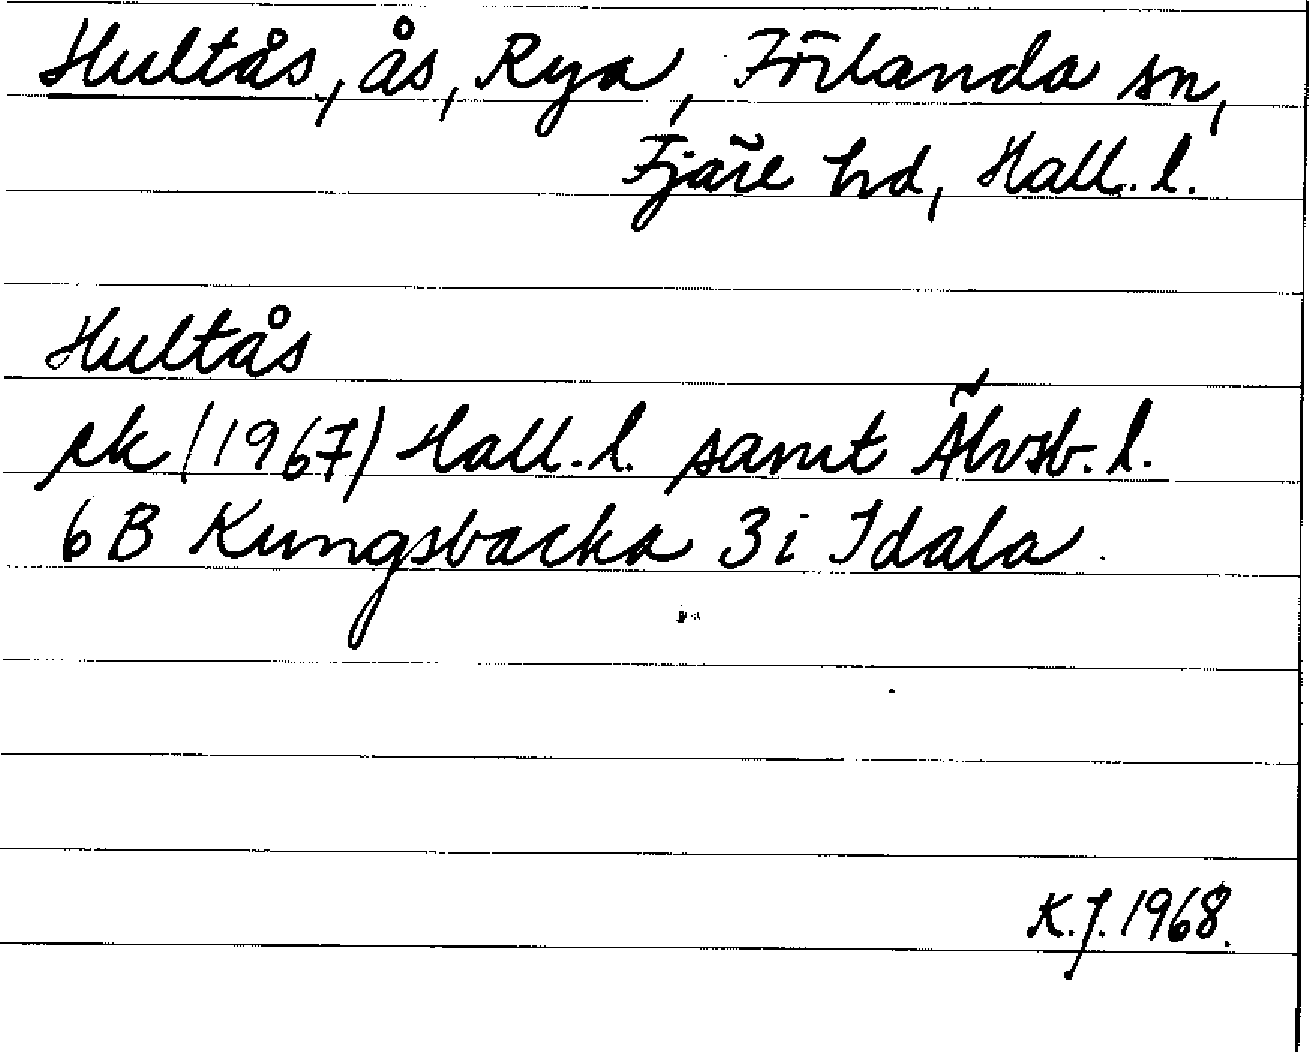 Hultås, ås, Rya, Förlanda sn,
Fjäre hd, Hall. l.
Hultås
ek (1967) Hall. l. samt Älvsb. l.
6 B Kungsbacka 3 i Idala
K.J. 1968.